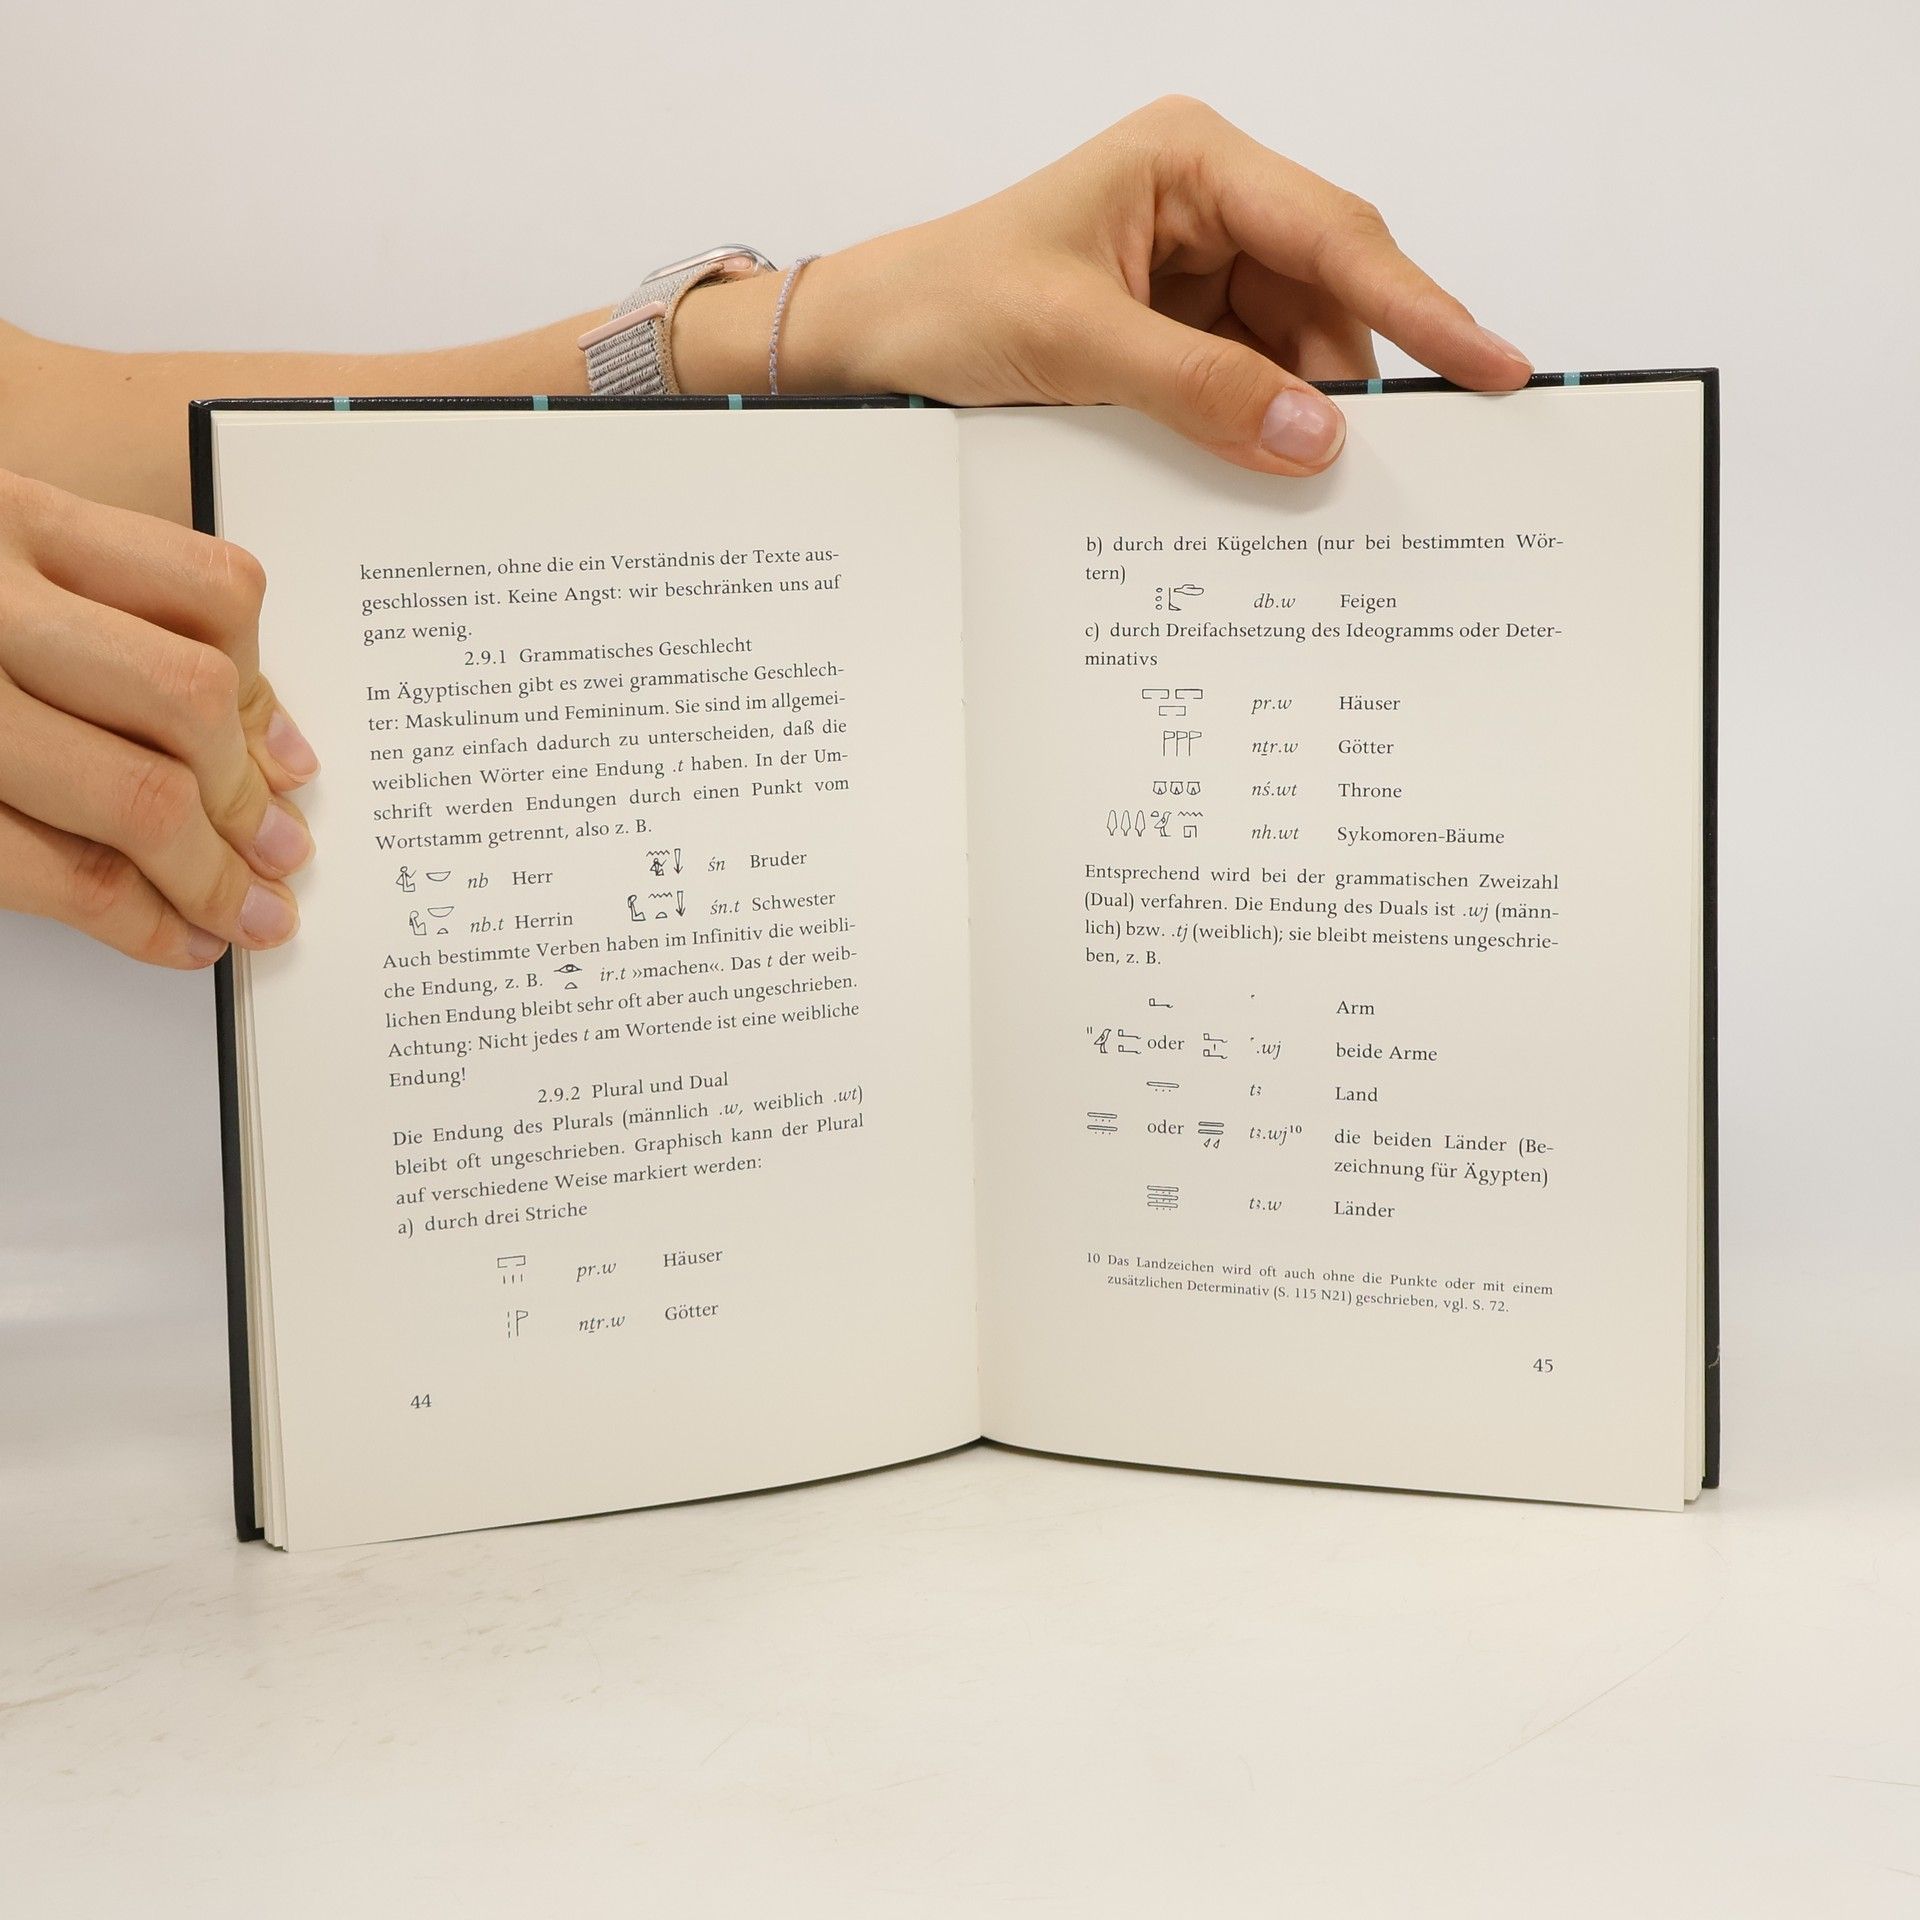 kennenlernen, ohne die ein Verständnis der Texte aus-
geschlossen ist. Keine Angst: wir beschränken uns auf
ganz wenig.
2.9.1 Grammatisches Geschlecht
Im Ägyptischen gibt es zwei grammatische Geschlech-
ter: Maskulinum und Femininum. Sie sind im allgemei-
nen ganz einfach dadurch zu unterscheiden, daß die
weiblichen Wörter eine Endung .t haben. In der Um-
schrift werden Endungen durch einen Punkt vom
Wortstamm getrennt, also z. B.
nb Herr śn Bruder
nb.t Herrin śn.t Schwester
Auch bestimmte Verben haben im Infinitiv die weibli-
che Endung, z. B. ir.t »machen«. Das t der weib-
lichen Endung bleibt sehr oft aber auch ungeschrieben.
Achtung: Nicht jedes t am Wortende ist eine weibliche
Endung!
2.9.2 Plural und Dual
Die Endung des Plurals (männlich .w, weiblich .wt)
bleibt oft ungeschrieben. Graphisch kann der Plural
auf verschiedene Weise markiert werden:
a) durch drei Striche
pr.w Häuser
nṯr.w Götter
44
b) durch drei Kügelchen (nur bei bestimmten Wör-
tern)
db.w Feigen
c) durch Dreifachsetzung des Ideogramms oder Deter-
minativs
pr.w Häuser
nṯr.w Götter
nś.wt Throne
nh.wt Sykomoren-Bäume
Entsprechend wird bei der grammatischen Zweizahl
(Dual) verfahren. Die Endung des Duals ist .wj (männ-
lich) bzw. .tj (weiblich); sie bleibt meistens ungeschrie-
ben, z. B.
ꜥ Arm
oder ꜥ.wj beide Arme
tꜣ Land
oder tꜣ.wj¹⁰ die beiden Länder (Be-
zeichnung für Ägypten)
tꜣ.w Länder
10 Das Landzeichen wird oft auch ohne die Punkte oder mit einem
zusätzlichen Determinativ (S. 115 N21) geschrieben, vgl. S. 72.
45